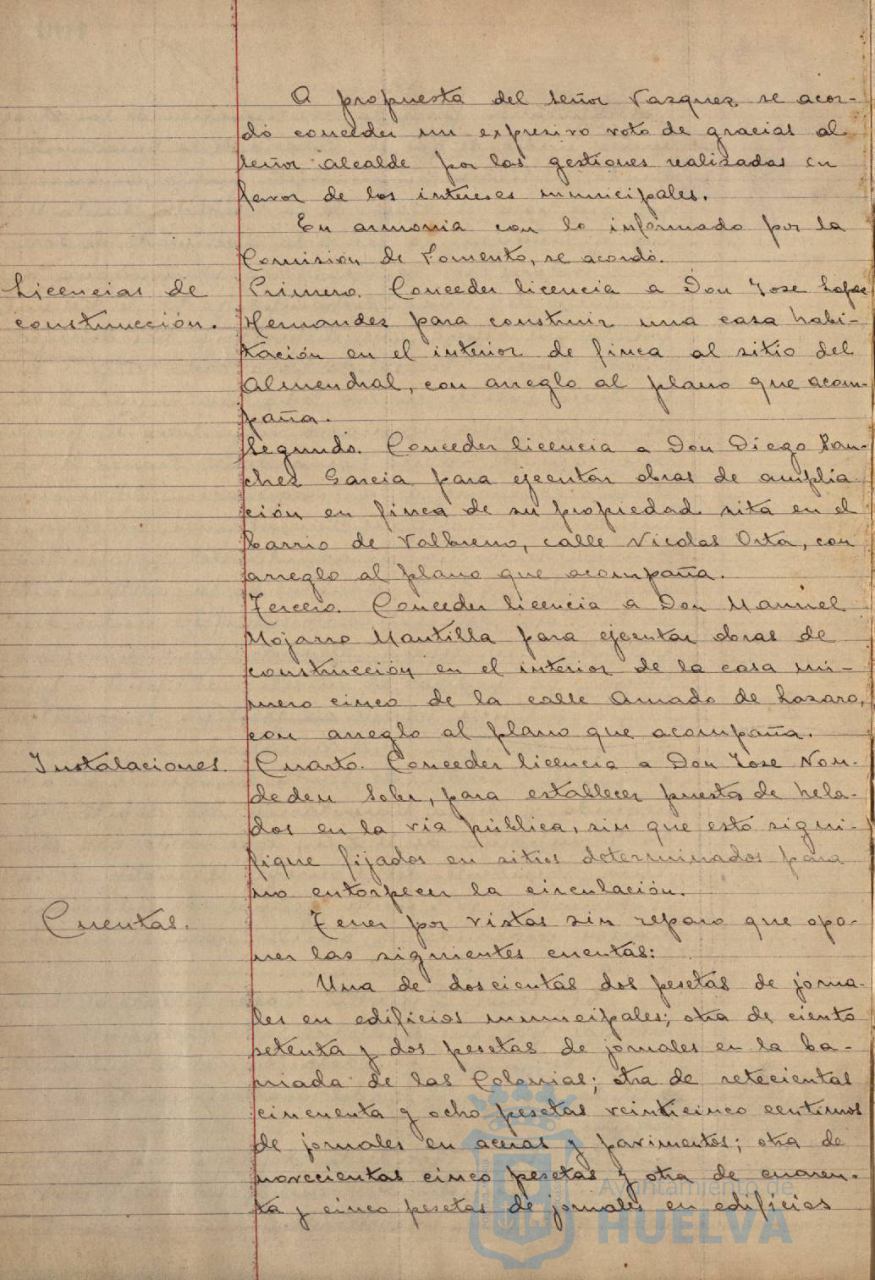 A propuesta del señor Vazquez se acor-
dó conceder un expresivo voto de gracias al
señor alcalde por las gestiones realizadas en
favor de los intereses municipales.
En armonia con lo informado por la
Comisión de Fomento, se acordó.
Licencias de
construcción.
Primero. Conceder licencia a Don Jose Lopez
Hernandez para construir una casa habi-
tación en el interior de finca al sitio del
Almendral, con arreglo al plano que acom-
paña.
Segundo. Conceder licencia a Don Diego San-
chez Garcia para ejecutar obras de amplia
ción en finca de su propiedad sita en el
barrio de Valbueno, calle Nicolas Orta, con
arreglo al plano que acompaña.
Tercero. Conceder licencia a Don Manuel
Mojarro Mantilla para ejecutar obras de
construcción en el interior de la casa nú-
mero cinco de la calle Amado de Lazaro,
con arreglo al plano que acompaña.
Instalaciones.
Cuarto. Conceder licencia a Don Jose Nom-
dedeu para establecer puesto de hela-
dos en la via pública, sin que estó signi-
fique fijados en sitios determinados para
no entorpecer la circulación.
Cuentas.
Tener por vistas sin reparo que opo-
ner las siguientes cuentas:
Una de doscientas dos pesetas de jorna-
les en edificios municipales; otra de ciento
setenta y dos pesetas de jornales en la ba-
rriada de las Colonias; otra de setecientas
cincuenta y ocho pesetas veinticinco centimos
de jornales en aceras y pavimentos; otra de
novecientas cinco pesetas y otra de cuaren-
ta y cinco pesetas de jornales en edificios
Ayuntamiento de
HUELVA